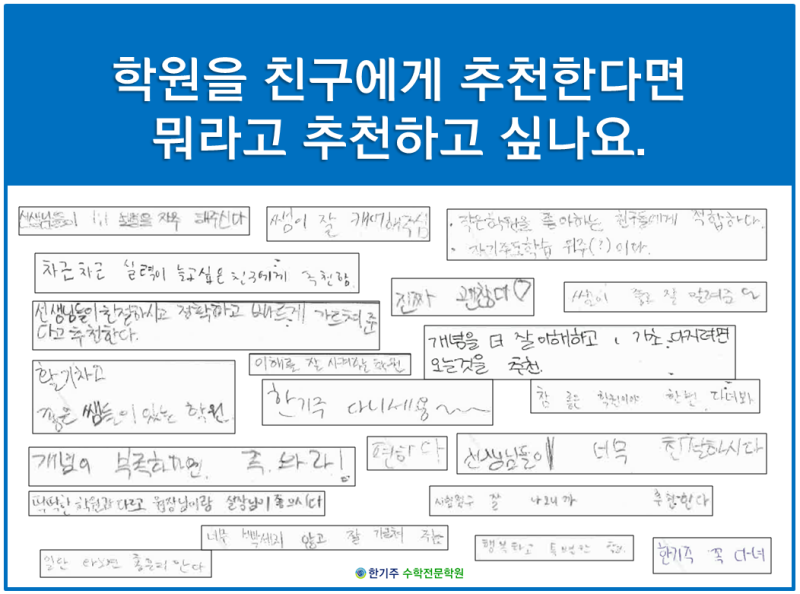 학원을 친구에게 추천한다면
뭐라고 추천하고 싶나요.
선생님들이 보충을 자주 해주신다
쌤이 잘 케어해주심
· 작은학원을 좋아하는 친구들에게 적합하다.
· 자기주도학습 위주(?)이다.
차근차근 실력이 늘고싶은 친구에게 추천함.
진짜 괜찮다♡
쌤이 잘 알려준다
선생님들이 친절하시고 정확하고 바르게 가르쳐준
다고 추천한다.
개념을 잘 이해하고, 기초 다지려면
오는것을 추천.
이해를 잘 시켜주는 학원
활기차고
젊은 쌤들이 있는 학원.
한기주 다니세용~~~
참 좋은 학원이야 한번 다녀봐
개념이 부족하다면, 꼭 와라!
편하다
선생님들이 너무 친절하시다
딱딱한 학원과 다르고 원장님이랑 실장님이 좋으시다
시험점수 잘 나오니까 추천한다
너무 빡세지 않고 잘 가르쳐 줘
일단 와보면 좋은지 안다
행복하고 함.
한기주 꼭 다녀
한기주 수학전문학원